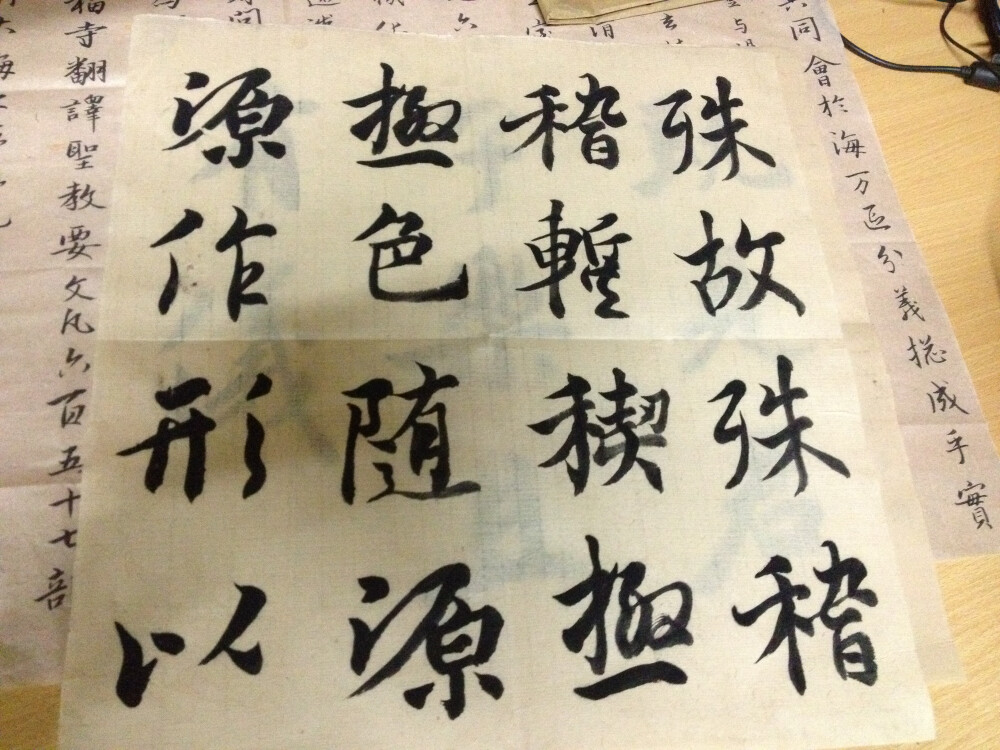 同會於海万区分義捴成乎實
殊故殊稽
稽輕稧極
極色随源
源作形以
福寺翻譯聖教要文凡六百五十七部